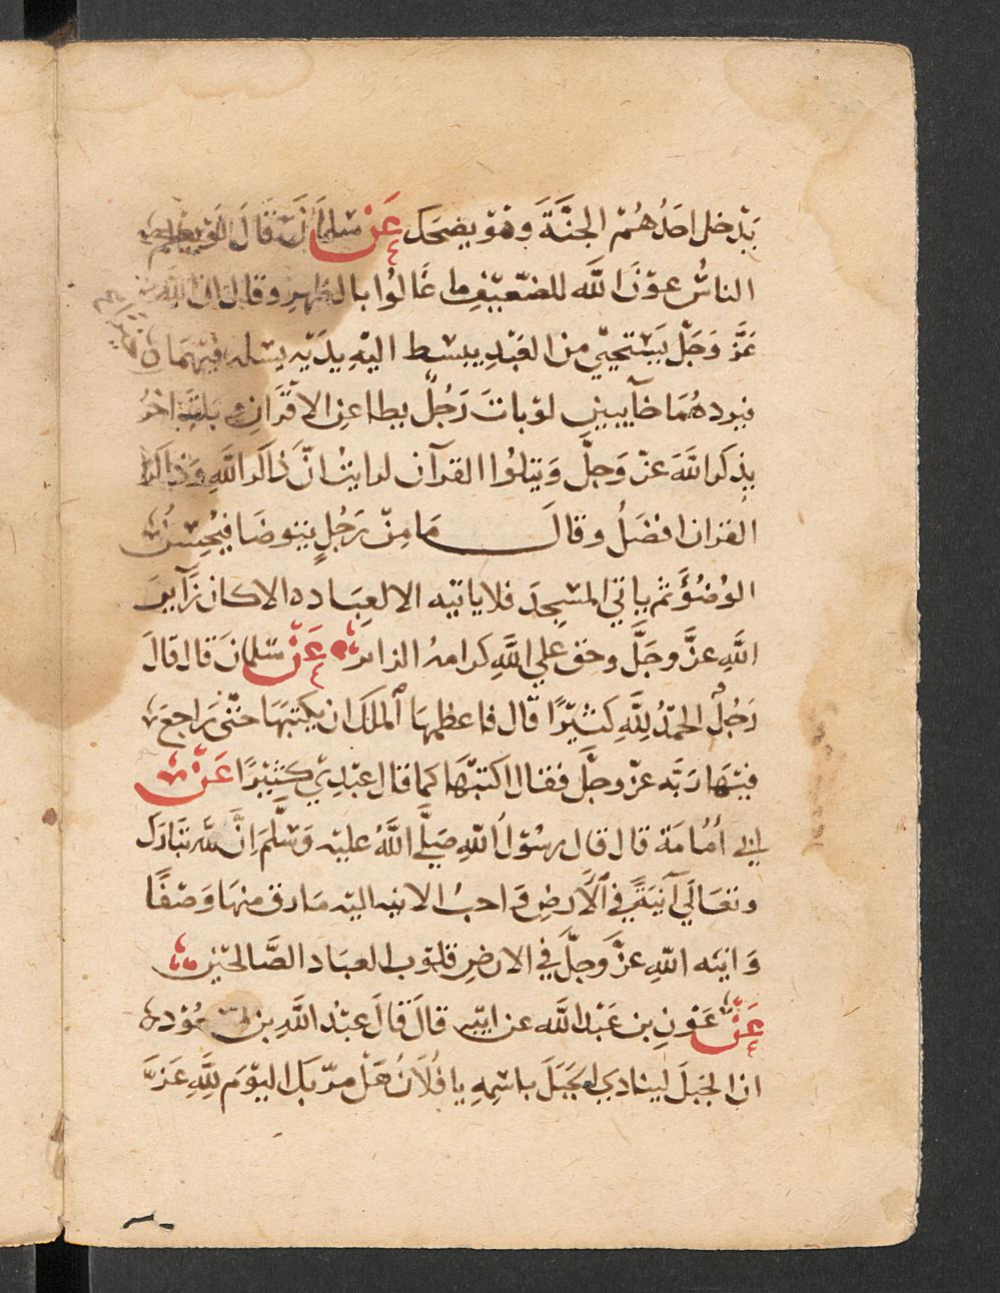 يَدْخل احَدُهُمْ الجنَّةَ وَهُوَ يضحَك عَنْ سَلمَانَ قَالَ لَوْ يعلم
الناسُ عوْنَ اللَّه للضّعيْفِ ما غَالوُا بالظهرِ وقال ان اللَّه
عَزَّ وَجَلّ يَسْتحييْ من العَبْدِ يبسط اليْهِ يدَيْهِ يسله فيْهمَا
فيردهُمَا خآيبين لوْ باتَ رَجُلٌ يطاعن الاقْرَانِ و اخرُ
يذكر اللَّهَ عزّ وَجلَّ وَيتلوُا القرآن لرايتُ انّ ذاكرَ اللَّهِ
القران افضلُ وقالَ مَا مِنْ رَجُلٍ يتوضا فيُحِسْنُ
الوُضُوْءَ ثم ياتي المسْجِدَ فلا ياتيه الا لعِبَاده الا كان زآيرَ
اللَّهِ عزَّ وجَلَّ وحق علي اللَّهِ كرامهُ الزاىر عَنْ سَلمانَ قال قالَ
رَجُلٌ الحَمْدُ لِلَّهِ كثيْرًا قال فاعظمهَا ٱلملَك ان يكتبَهَا حتّى رَاجعَ
فيْهَا رَبَّه عزّ وجلَّ فقال اكتبْهَا كما قال عبْدِيْ كثيْرًا عَنْ
ابيْ أمُامَة قال قال رسُوْل اللَّهِ صَلَّي اللَّهُ عليْه وَسَلَّمَ اِنَّ للّه تبَارَك
وتعَالَي آنيَةً في ٱلاَرضِ وَاحبُ الانيه اليْه مَا رق منهَا وَصَفَا
وَانيَه اللَّهِ عزَّ وَجلَّ في الارضِ قلوْب العبَاد الصَّالحيْن
عَنْ عَوْنِ بن عَبْد اللَّه عن ابيْه قالَ قَالَ عبْدُ اللَّهِ بن
ان الجَبَلَ لينادي الجَبَلَ باسْمِهِ يا فُلَانُ هَلْ مرّ بكَ اليَوْمَ لِلَّهِ عَزَّ